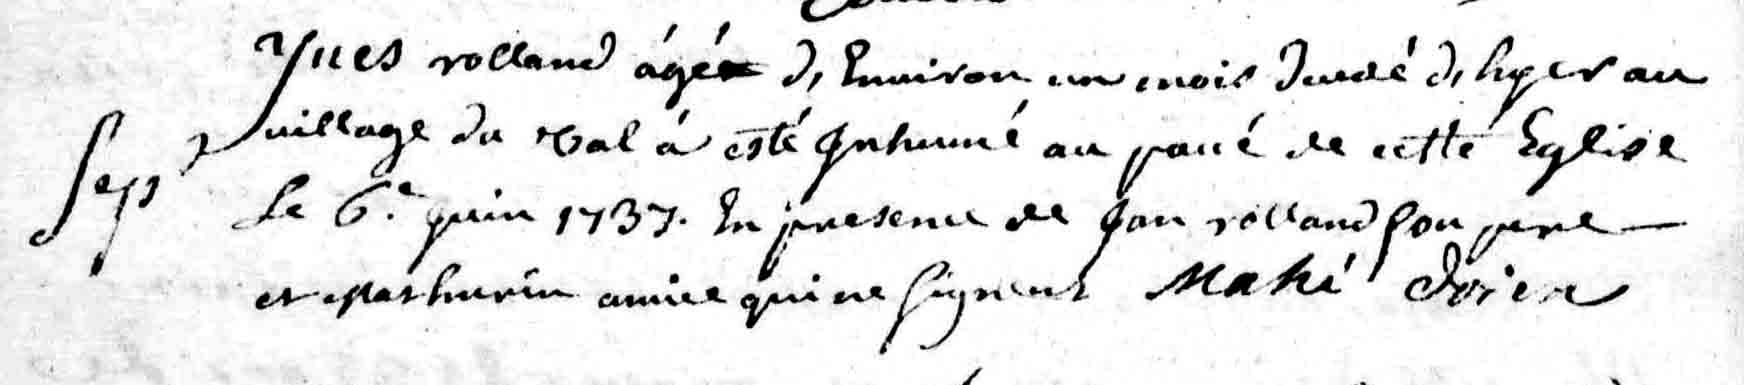 Yves rolland ágé d'Environ un mois decedé d'hyer au
village du Val á esté Inhumé au pavé de cette Eglise
Sep^r
Le 6.e juin 1737. En presence de Jan rolland son pere
et Mathurin amice qui ne signent Mahé Doien